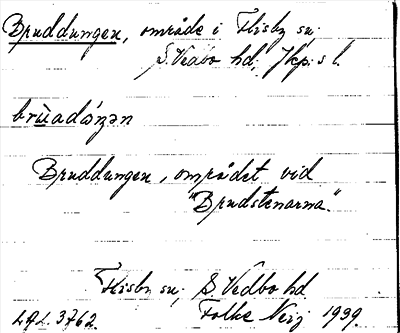 Bruddungen, område i Flisby sn,
S. Vedbo hd; Jkp:s l.
brùadóŋən
Bruddungen, området vid
"Brudstenarna".
Flisby sn; S. Vedbo hd
LAL. 3762. Folke 1939.